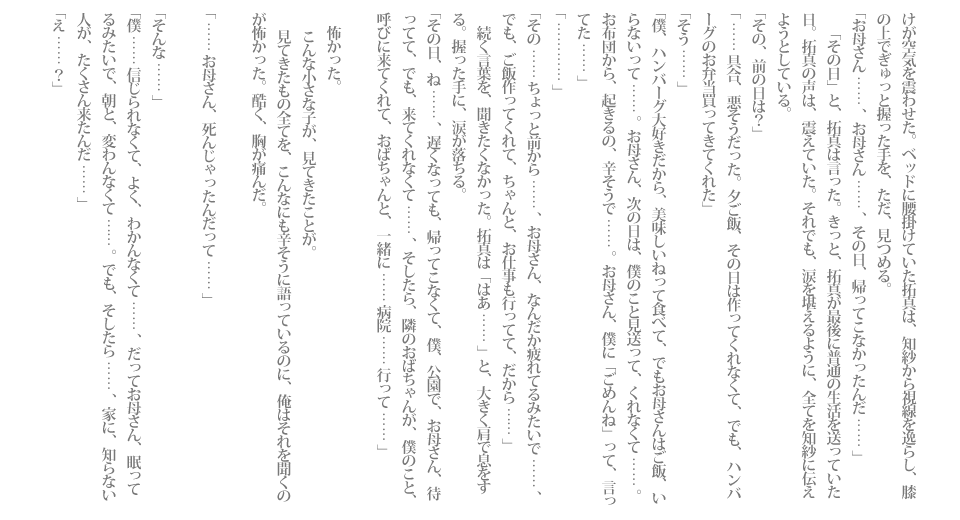 けが空気を震わせた。ベッドに腰掛けていた拓真は、知紗から視線を逸らし、膝
の上でぎゅっと握った手を、ただ、見つめる。
「お母さん……、お母さん……、その日、帰ってこなかったんだ……」
「その日」と、拓真は言った。きっと、拓真が最後に普通の生活を送っていた
日。拓真の声は、震えていた。それでも、涙を堪えるように、全てを知紗に伝え
ようとしている。
「その、前の日は？」
「……具合、悪そうだった。夕ご飯、その日は作ってくれなくて、でも、ハンバ
ーグのお弁当買ってきてくれた」
「そう……」
「僕、ハンバーグ大好きだから、美味しいねって食べて、でもお母さんはご飯、い
らないって……。お母さん、次の日は、僕のこと見送って、くれなくて……。
お布団から、起きるの、辛そうで……。お母さん、僕に「ごめんね」って、言っ
てた……」
「…………」
「その……ちょっと前から……、お母さん、なんだか疲れてるみたいで……、
でも、ご飯作ってくれて、ちゃんと、お仕事も行ってて、だから……」
続く言葉を、聞きたくなかった。拓真は「はあ……」と、大きく肩で息をす
る。握った手に、涙が落ちる。
「その日、ね……、遅くなっても、帰ってこなくて、僕、公園で、お母さん、待
ってて、でも、来てくれなくて……、そしたら、隣のおばちゃんが、僕のこと、
呼びに来てくれて、おばちゃんと、一緒に……病院……行って……」
怖かった。
こんな小さな子が、見てきたことが。
見てきたもの全てを、こんなにも辛そうに語っているのに、俺はそれを聞くの
が怖かった。酷く、胸が痛んだ。
「……お母さん、死んじゃったんだって……」
「そんな……」
「僕……信じられなくて、よく、わかんなくて……、だってお母さん、眠って
るみたいで、朝と、変わんなくて……。でも、そしたら……、家に、知らない
人が、たくさん来たんだ……」
「え……？」